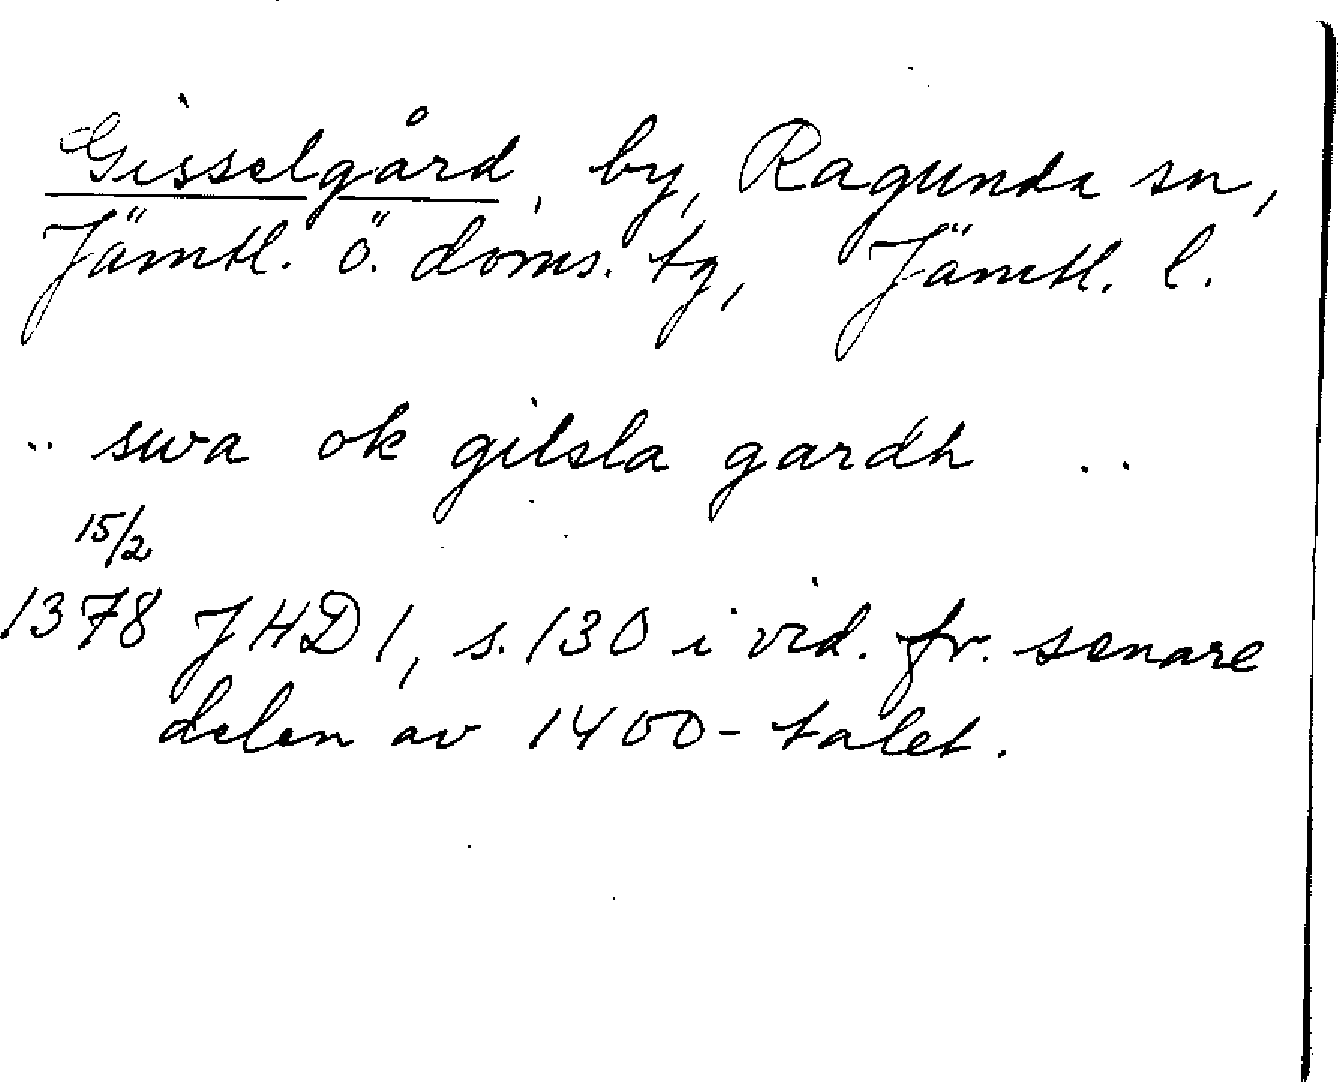 Gisselgård, by, Ragunda sn,
Jämtl. ö. doms. tg, Jämtl. l.
.. swa ok gilsla gardh ..
15/2
1378 JHD 1, s. 130 i vid. fr. senare
delen av 1400-talet.